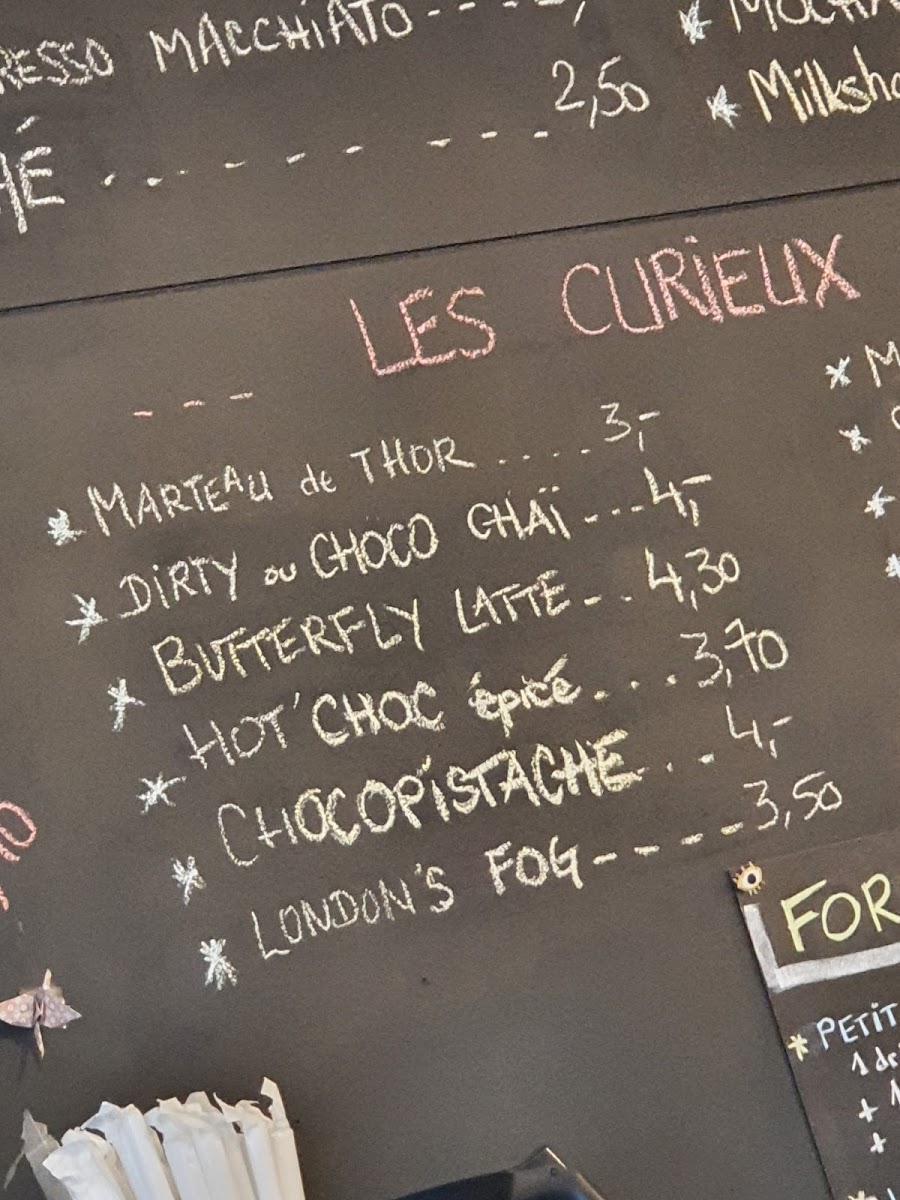 MACCHIATO - - -
2,50
* Milksh
LES CURIEUX
- - -
* MARTEAU de THOR ..... 3,-
* DIRTY ou CHOCO CHAÏ - - - 4,-
* BUTTERFLY LATTE - . . 4,30
* HOT' CHOC épicé . . . . 3,70
* CHOCOPISTACHE . . . 4,-
* LONDON'S FOG - - - - - 3,50
FOR
* PETIT
1
+ 1
+